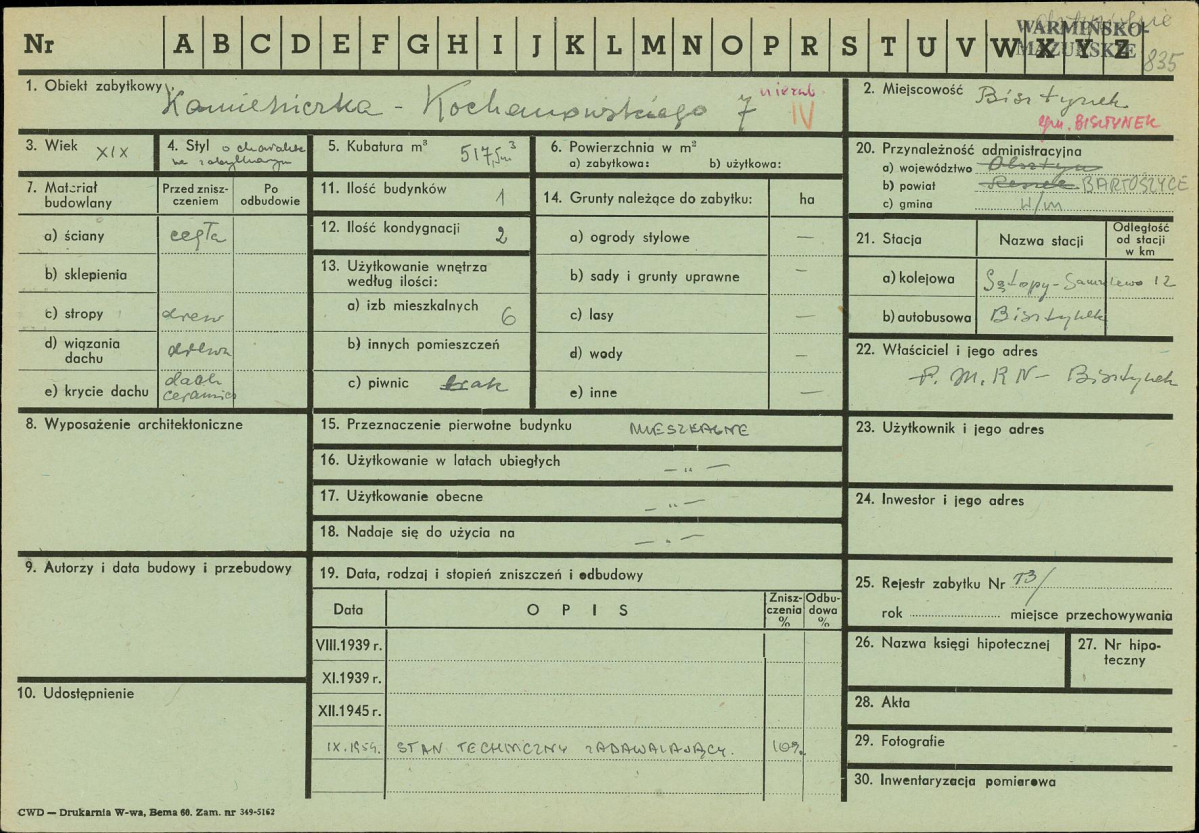 Nr A B C D E F G H I J K L M N O P R S T U V W X Y Z
WARMIŃSKO-
MAZURSKIE
835
1. Obiekt zabytkowy Kamieniczka - Kochanowskiego 7
IV
2. Miejscowość Bisztynek
gm. BISZTYNEK
3. Wiek XIX
4. Styl o charakte
rze zabytkowym
5. Kubatura m³ 517,5m³
6. Powierzchnia w m²
a) zabytkowa: b) użytkowa:
20. Przynależność administracyjna
a) województwo Olsztyn
b) powiat Reszel BARTOSZYCE
c) gmina W/m
7. Materiał
budowlany
Przed znisz-
czeniem
Po
odbudowie
a) ściany cegła
b) sklepienia
c) stropy drew
d) wiązania
dachu drewn
e) krycie dachu dach
ceramicz
11. Ilość budynków 1
12. Ilość kondygnacji 2
13. Użytkowanie wnętrza
według ilości:
a) izb mieszkalnych 6
b) innych pomieszczeń
c) piwnic brak
14. Grunty należące do zabytku: ha
a) ogrody stylowe —
b) sady i grunty uprawne —
c) lasy —
d) wody —
e) inne —
21. Stacja Nazwa stacji
Odległość
od stacji
w km
a) kolejowa Sątopy-Samulewo 12
b) autobusowa Bisztynek
22. Właściciel i jego adres
P.M.RN - Bisztynek
8. Wyposażenie architektoniczne
15. Przeznaczenie pierwotne budynku MIESZKALNE
16. Użytkowanie w latach ubiegłych — „ —
17. Użytkowanie obecne — „ —
18. Nadaje się do użycia na — „ —
23. Użytkownik i jego adres
24. Inwestor i jego adres
9. Autorzy i data budowy i przebudowy
10. Udostępnienie
19. Data, rodzaj i stopień zniszczeń i odbudowy
Data OPIS
Znisz-
czenia
%
Odbu-
dowa
%
VIII.1939 r.
XI.1939 r.
XII.1945 r.
IX.1959. STAN TECHNICZNY ZADAWALAJĄCY. 10%
25. Rejestr zabytku Nr
rok miejsce przechowywania
26. Nazwa księgi hipotecznej
27. Nr hipo-
teczny
28. Akta
29. Fotografie
30. Inwentaryzacja pomiarowa
CWD — Drukarnia W-wa, Bema 60. Zam. nr 349-5162